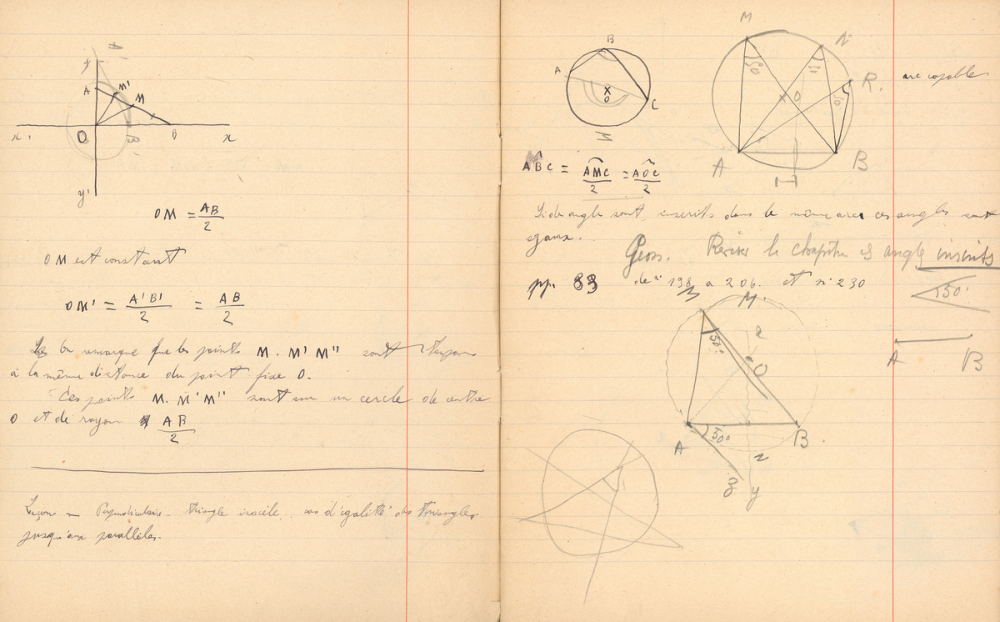 y
A
M'
M
x'
O
B
B
x
y'
OM = AB/2
OM est constant
OM' = A'B'/2 = AB/2
on remarque que les points M. M' M" sont toujours
à la même distance du point fixe O.
Ces points M. M' M" sont sur un cercle de centre
O et de rayon AB/2
Leçon — Perpendiculaire - triangle isocèle. cas d'égalité des triangles
jusqu'aux parallèles.
B
A
O
C
M
M
N
R.
50
O
A
B
I
arc capable
ABC = AMC/2 = AOC/2
Si de angle sont inscrits dans le même arc ces angles sont
egaux.
Geom. Reviser le chapitre angle inscrits
pp. 83 de n° 198 a 206. et n° 230
50°
A
B
M
M'
50°
O
A
50°
B
z
z
y